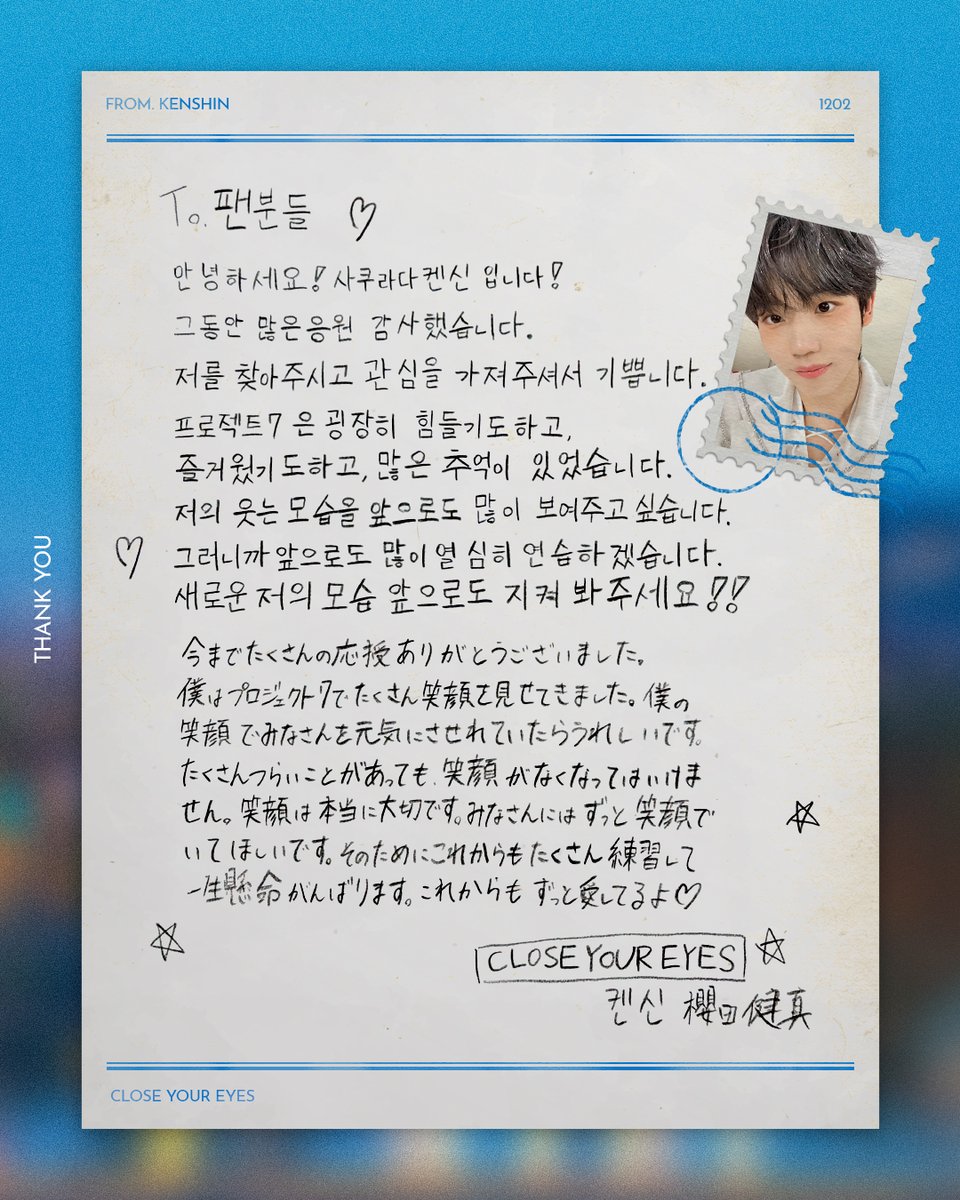 FROM. KENSHIN
1202
To. 팬분들 ♡
안녕하세요! 사쿠라다켄신 입니다!
그동안 많은응원 감사했습니다.
저를 찾아주시고 관심을 가져주셔서 기쁩니다.
프로젝트7 은 굉장히 힘들기도하고,
즐거웠기도하고, 많은 추억이 있었습니다.
저의 웃는 모습을 앞으로도 많이 보여주고싶습니다.
그러니까 앞으로도 많이열심히 연습하겠습니다.
새로운 저의 모습 앞으로도 지켜 봐주세요!!
今までたくさんの応授ありがとうございました。
僕はプロジェクト7でたくさん笑顔を見せてきました。僕の
笑顔でみなさんを元気にさせれていたらうれしいです。
たくさんつらいことがあっても、笑顔がなくなってはいけま
せん。笑顔は本当に大切です。みなさんにはずっと笑顔で
いてほしいです。そのためにこれからもたくさん練習して
一生懸命がんばります。これからもずっと愛してるよ♡
CLOSE YOUR EYES
켄신 櫻田健真
THANK YOU
CLOSE YOUR EYES